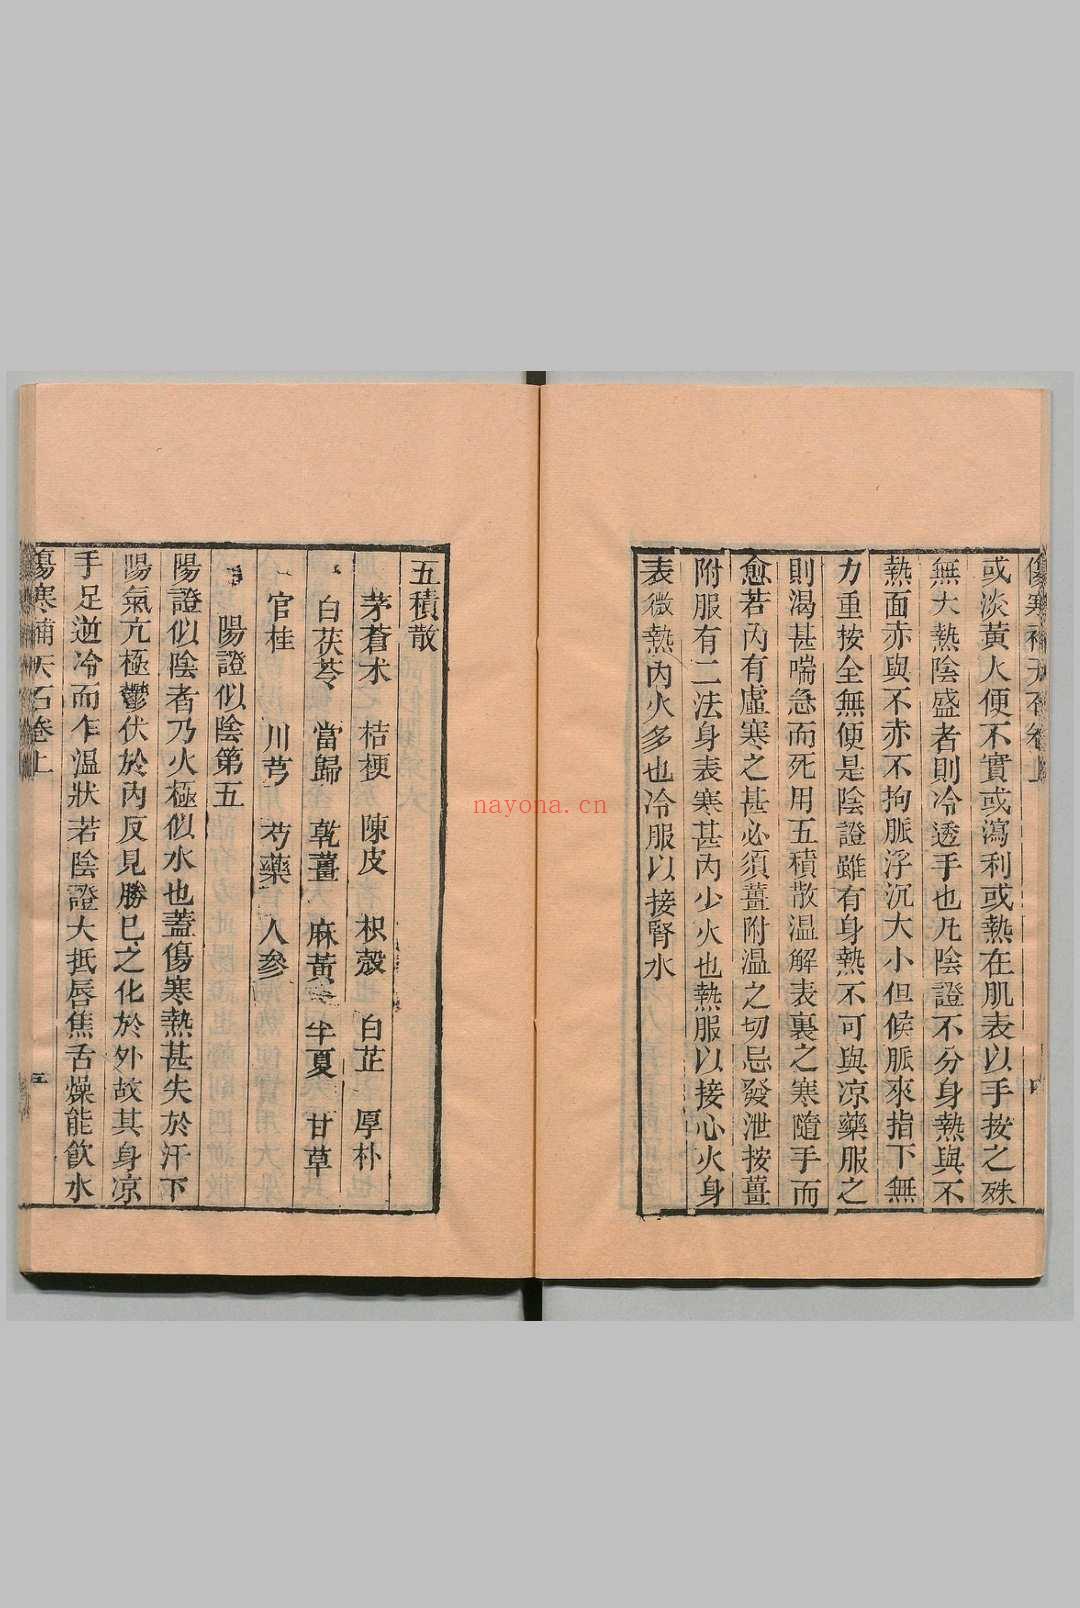 傷寒補天石卷上
或淡黃大便不實或瀉利或熱在肌表以手按之殊
無大熱陰盛者則冷透手也凡陰證不分身熱與不
熱面赤與不赤不拘脈浮沉大小但候脈來指下無
力重按全無便是陰證雖有身熱不可與凉藥服之
則渴甚喘急而死用五積散温解表裏之寒隨手而
愈若內有虛寒之甚必須薑附温之切忌發泄按薑
附服有二法身表寒甚內少火也熱服以接心火身
表微熱內火多也冷服以接腎水
五積散
茅蒼术 桔梗 陳皮 枳殼 白芷 厚朴
白茯苓 當歸 乾薑 麻黃 半夏 甘草
官桂 川芎 芍藥 人參
陽證似陰第五
陽證似陰者乃火極似水也蓋傷寒熱甚失於汗下
陽氣亢極鬱伏於內反見勝巳之化於外故其身凉
手足逆冷而乍溫狀若陰證大抵唇焦舌燥能飲水
傷寒補天石卷上 五
nayona.cn